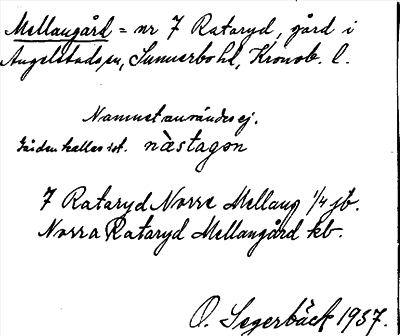 Mellangård = nr 7 Rataryd, gård i
Angelstads sn, Sunnerbo hd, Kronob. l.
Namnet användes ej.
Gården kallas ist. nästagɷn
7 Rataryd Norra Mellang 1/4 jb.
Norra Rataryd Mellangård kb.
O. Segerbäck 1937.